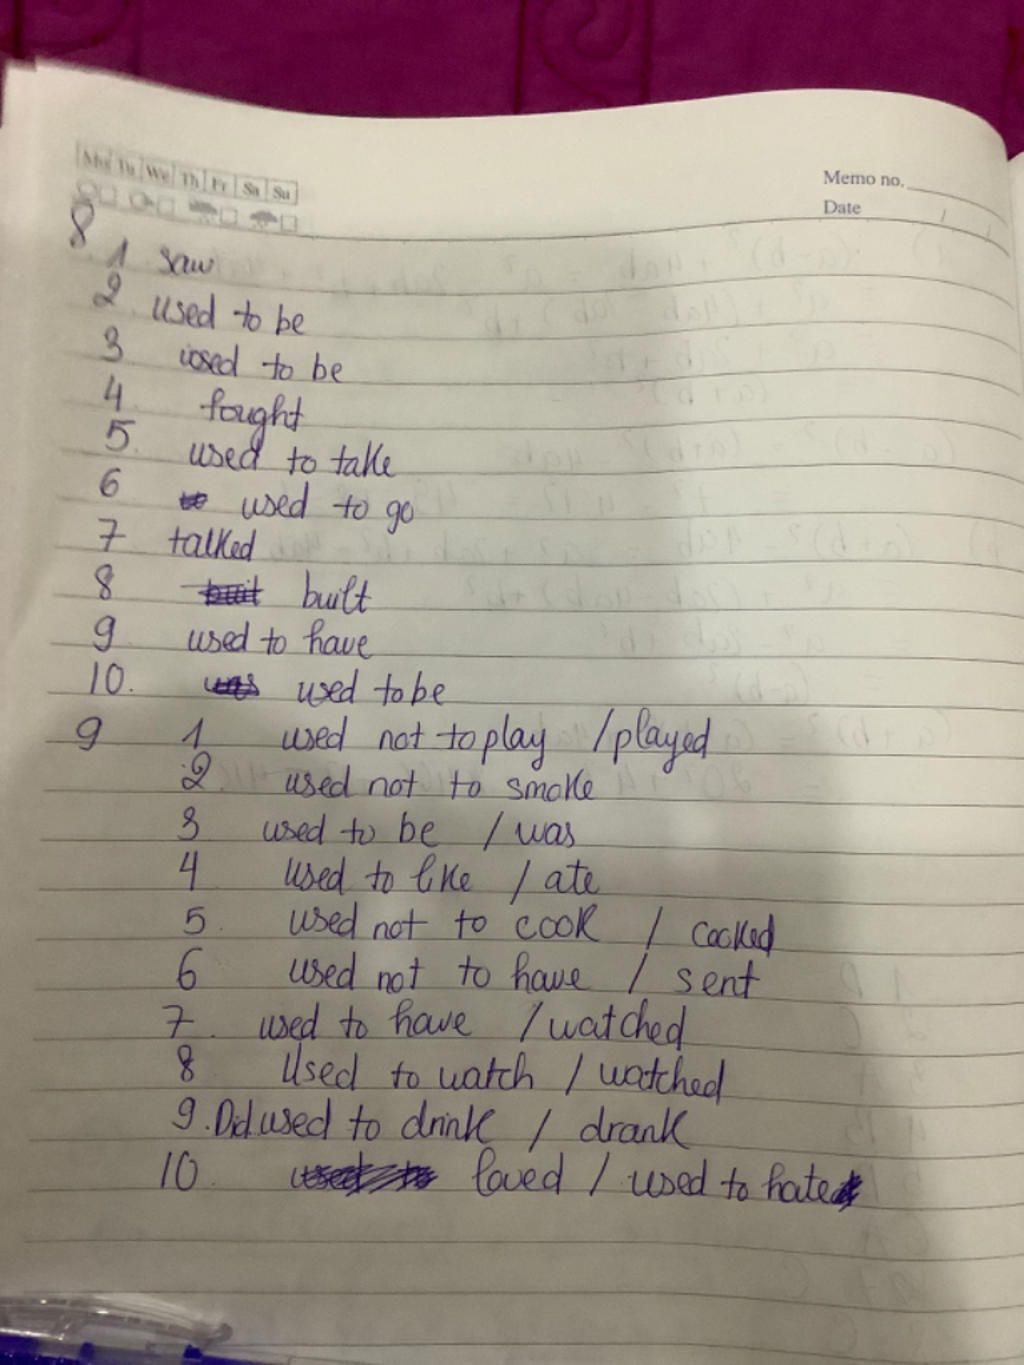 Mo Tu We Th Fr Sa Su
Memo no.
Date / /
8 1 saw
2. used to be
3 used to be
4 fought
5. used to take
6 used to go
7 talked
8 built
9 used to have
10. used to be
9 1 used not to play / played
2 used not to smoke
3 used to be / was
4 used to like / ate
5. used not to cook / cooked
6 used not to have / sent
7. used to have / watched
8 Used to watch / watched
9. Did used to drink / drank
10 loved / used to hate